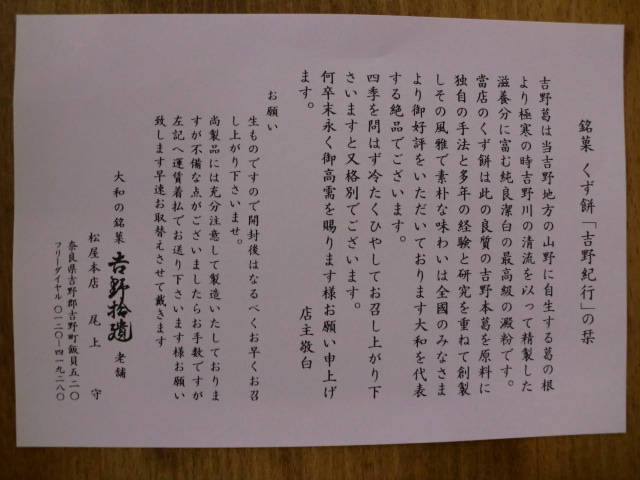 銘菓 くず餅「吉野紀行」の栞
吉野葛は当吉野地方の山野に自生する葛の根
より極寒の時吉野川の清流を以って精製した
滋養分に富む純良潔白の最高級の澱粉です。
當店のくず餅は此の良質の吉野本葛を原料に
独自の手法と多年の経験と研究を重ねて創製
しその風雅で素朴な味わいは全国のみなさま
より御好評をいただいております大和を代表
する絶品でございます。
四季を問はず冷たくひやしてお召し上がり下
さいますと又格別でございます。
何卒末永く御高需を賜ります様お願い申上げ
ます。
店主敬白
お願い
生ものですので開封後はなるべくお早くお召
し上がり下さいませ。
尚製品には充分注意して製造いたしておりま
すが不備な点がございましたらお手数ですが
左記へ運賃着払でお送り下さいます様お願い
致します早速お取替えさせて戴きます
大和の銘菓 吉野拾遺 老舗
松屋本店 尾上 守
奈良県吉野郡吉野町飯貝五二〇
フリーダイヤル 〇一二〇―四一九二八〇